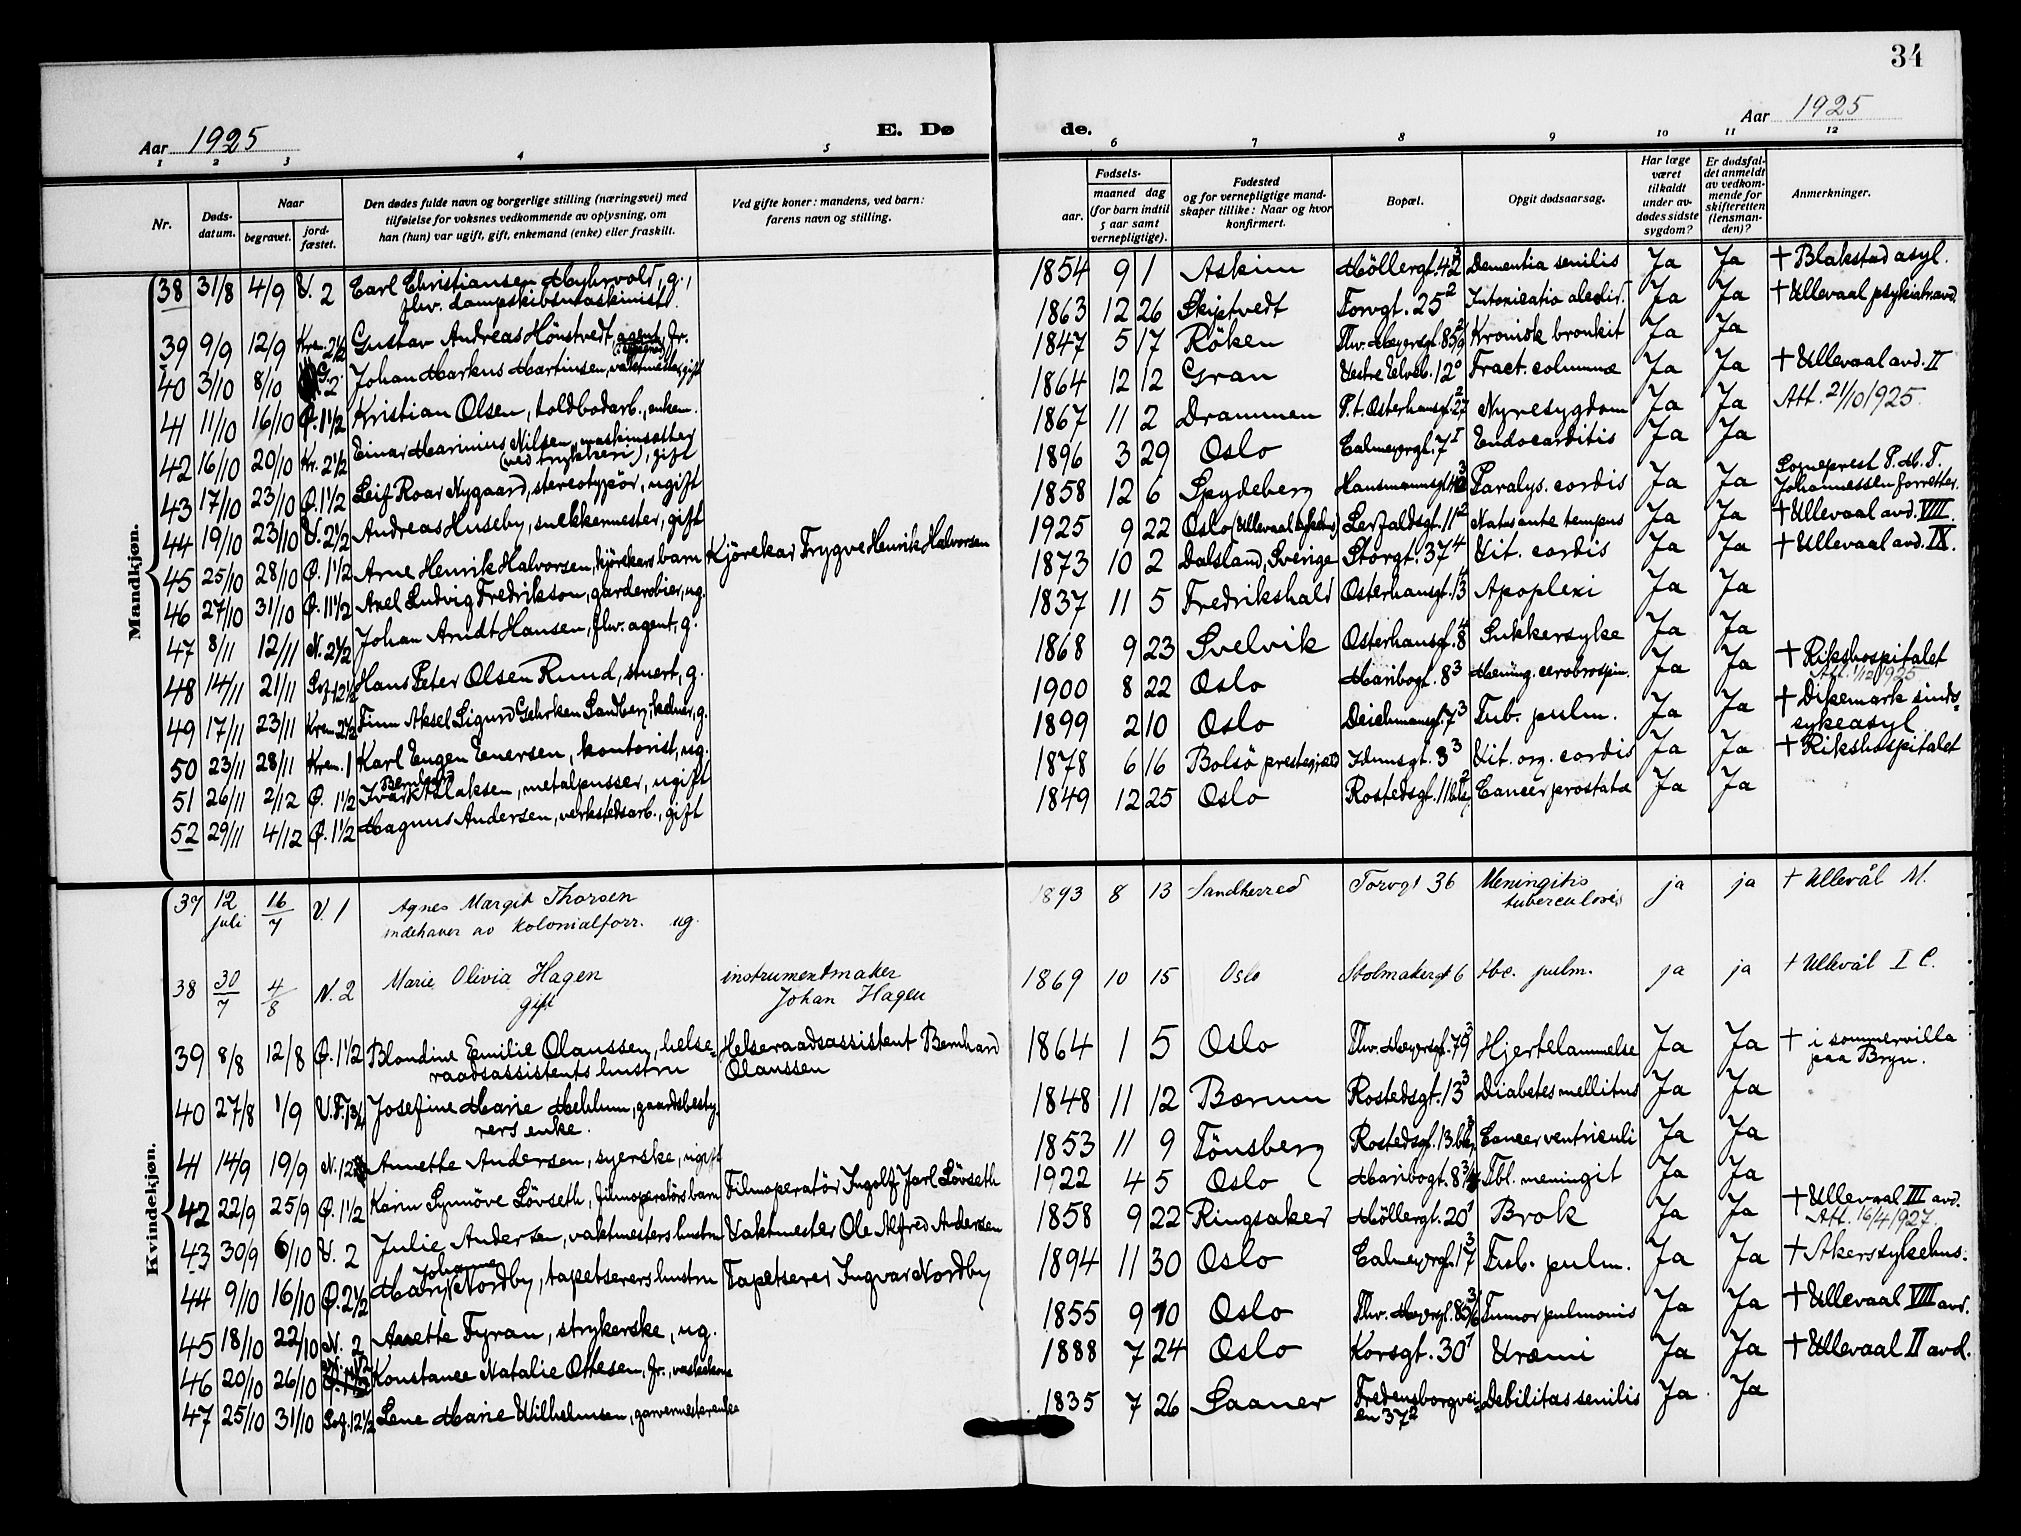 34
Aar 1925
E. Dø de.
Aar 1925
1 2 3 4 5 6 7 8 9 10 11 12
Nr.
Døds-
datum.
Naar
begravet.
jord-
fæstet.
Den dødes fulde navn og borgerlige stilling (næringsvei) med
tilføielse for voksnes vedkommende av oplysning, om
han (hun) var ugift, gift, enkemand (enke) eller fraskilt.
Ved gifte koner: mandens, ved barn:
farens navn og stilling.
Fødsels-
aar.
maaned dag
(for barn indtil
5 aar samt
vernepligtige).
Fødested
og for vernepligtige mand-
skaper tillike: Naar og hvor
konfirmert.
Bopæl.
Opgit dødsaarsag.
Har læge
været
tilkaldt
under av-
dødes sidste
sygdom?
Er dødsfal-
det anmeldt
av vedkom-
mende for
skifteretten
(lensman-
den)?
Anmerkninger.
Mandkjøn.
38 31/8 4/9 V. 2 Carl Christiansen Myhrvold, g., 1854 9 1 Askim Möllergt. 42³ Dementia senilis Ja Ja † Blakstad asyl.
fhv. dampskibsmaskinist.
39 9/9 12/9 Krem. 2½ Gustav Andreas Hönstvedt, fr. 1863 12 26 Skiptvedt Torvgt. 25² Intoxicatio Ja Ja † Ullevaal psykiatr. avd.
40 3/10 8/10 2 Johan Markus Martinsen, vaktmester, gift 1847 5 17 Röken Thv. Meyersgt. 85 Kronisk bronkit Ja Ja
41 11/10 16/10 Ø. 1½ Kristian Olsen, toldbodarb., enkem. 1864 12 12 Gran Vestre Elveb. 12⁰ Fract. columnæ Ja Ja † Ullevaal avd. II
42 16/10 20/10 Kr. 2½ Einar Marinius Nilsen, maskinsetter 1867 11 2 Drammen P.t. Osterhausgt. 27² Nyresygdom Ja Ja Att. 21/10 1925.
(ved trykkeri), gift
43 17/10 23/10 Ø. 1½ Leif Roar Nygaard, stereotypör, ugift 1896 3 29 Oslo Calmeyergt. 7¹ Endocarditis Ja Ja
44 19/10 23/10 V. 2½ Andreas Huseby, snekkermester, gift 1858 12 6 Spydeberg Hausmannsgt. Paralys. cordis Ja Ja Sogneprest P. M. T.
Johannessen forrettet.
45 25/10 28/10 Ø. 1½ Arne Henrik Halvorsen, kjörekars barn Kjörekar Trygve Henrik Halvorsen 1925 9 22 Oslo (Ullevaal sykehus) Lerfaldsgt. 11² Natus ante tempus Ja Ja † Ullevaal avd. VIII.
46 27/10 31/10 Ø. 11½ Axel Ludvig Fredrikson, garderobier, ug. 1873 10 2 Dalsland, Sverige Storgt. 37⁴ Vit. cordis Ja Ja † Ullevaal avd. IX.
47 8/11 12/11 N. 2½ Johan Arndt Hansen, fhv. agent, g. 1837 11 5 Fredrikshald Osterhausgt. 13 Apoplexi Ja Ja
48 14/11 21/11 Sof. 12½ Hans Peter Olsen Ruud, stuert, g. 1868 9 23 Svelvik Osterhausgt. 8⁴ Sukkersyke Ja Ja
49 17/11 23/11 Krem. 2½ Finn Aksel Sigurd Gehrken Sandberg, kelner, g. 1900 8 22 Oslo Maribogt. 8³ Mening. cerobrospin. Ja Ja † Rikshospitalet
Att. 1/12 1925
50 23/11 28/11 Krem. 1 Karl Eugen Enersen, kontorist, ug. 1899 2 10 Oslo Deichmansgt. 7³ Tub. pulm. Ja Ja † Dikemark sinds-
sykeasyl
51 26/11 2/12 Ø. 1½ Ivar Bernhard Aslaksen, metalpusser, ugift 1878 6 16 Bolsö prestegjeld Idunsgt. 3³ Vit. org. cordis Ja Ja † Rikshospitalet
52 29/11 4/12 Ø. 1½ Magnus Andersen, verkstedsarb., gift 1849 12 25 Oslo Rostedsgt. 11b² Cancer prostatæ Ja Ja
Kvindekjøn.
37 12 juli 16/7 V. 1 Agnes Margit Thorsen 1893 8 13 Sandherred Torvgt 36 Meningitis ja ja † Ullevål M.
indehaver av kolonialforr. ug. tuberculosis
38 30/7 4/8 N. 2 Marie Olivia Hagen instrumentmaker 1869 10 15 Oslo Stolmakergt 6 tbc. pulm. ja ja † Ullevål I C.
gift Johan Hagen
39 8/8 12/8 Ø. 1½ Blondine Emilie Olaussen, helse- Helseraadsassistent Bernhard 1864 1 5 Oslo Thv. Meyersgt. 79³ Hjertelammelse Ja Ja † i sommervilla
raadsassistents hustru Olaussen paa Bryn.
40 27/8 1/9 V.F. 1¾ Josefine Marie Mehlum, gaardsbesty- 1848 11 12 Bærum Rostedsgt. 13³ Diabetes mellitus Ja Ja
rers enke.
41 14/9 19/9 N. 12 Annette Andersen, syerske, ugift 1853 11 9 Tönsberg Rostedsgt. 13b³ Cancer ventriculi Ja Ja
42 22/9 25/9 Ø. 1½ Karin Synnöve Lövseth, filmoperatörs barn Filmoperatör Ingolf Jarl Lövseth 1922 4 5 Oslo Maribogt. 8 Tbl. meningit Ja Ja
43 30/9 6/10 V. 2 Julie Andersen, vaktmesters hustru Vaktmester Ole Alfred Andersen 1858 9 22 Ringsaker Möllergt. 20¹ Brok Ja Ja † Ullevaal III avd.
Att. 16/4 1927.
44 9/10 16/10 Ø. 2½ Mary Johanne Nordby, tapetserers hustru Tapetserer Ingvar Nordby 1894 11 30 Oslo Calmeyergt. 17³ Tub. pulm. Ja Ja † Akers sykehus.
45 18/10 22/10 N. 2 Anette Fyran, strykerske, ug. 1855 9 10 Oslo Thv. Meyergt. 85 Tumor pulmonis Ja Ja † Ullevaal VIII avd.
46 20/10 26/10 Konstance Natalie Ottesen, fr., vaskekone 1888 7 24 Oslo Korsgt. 30¹ Uræmi Ja Ja † Ullevaal II avd.
47 25/10 31/10 Sof. 12½ Lene Marie Wilhelmsen, garvermesterenke 1835 7 26 Saaner Fredensborgvei- Debilitas senilis Ja Ja
en 37²